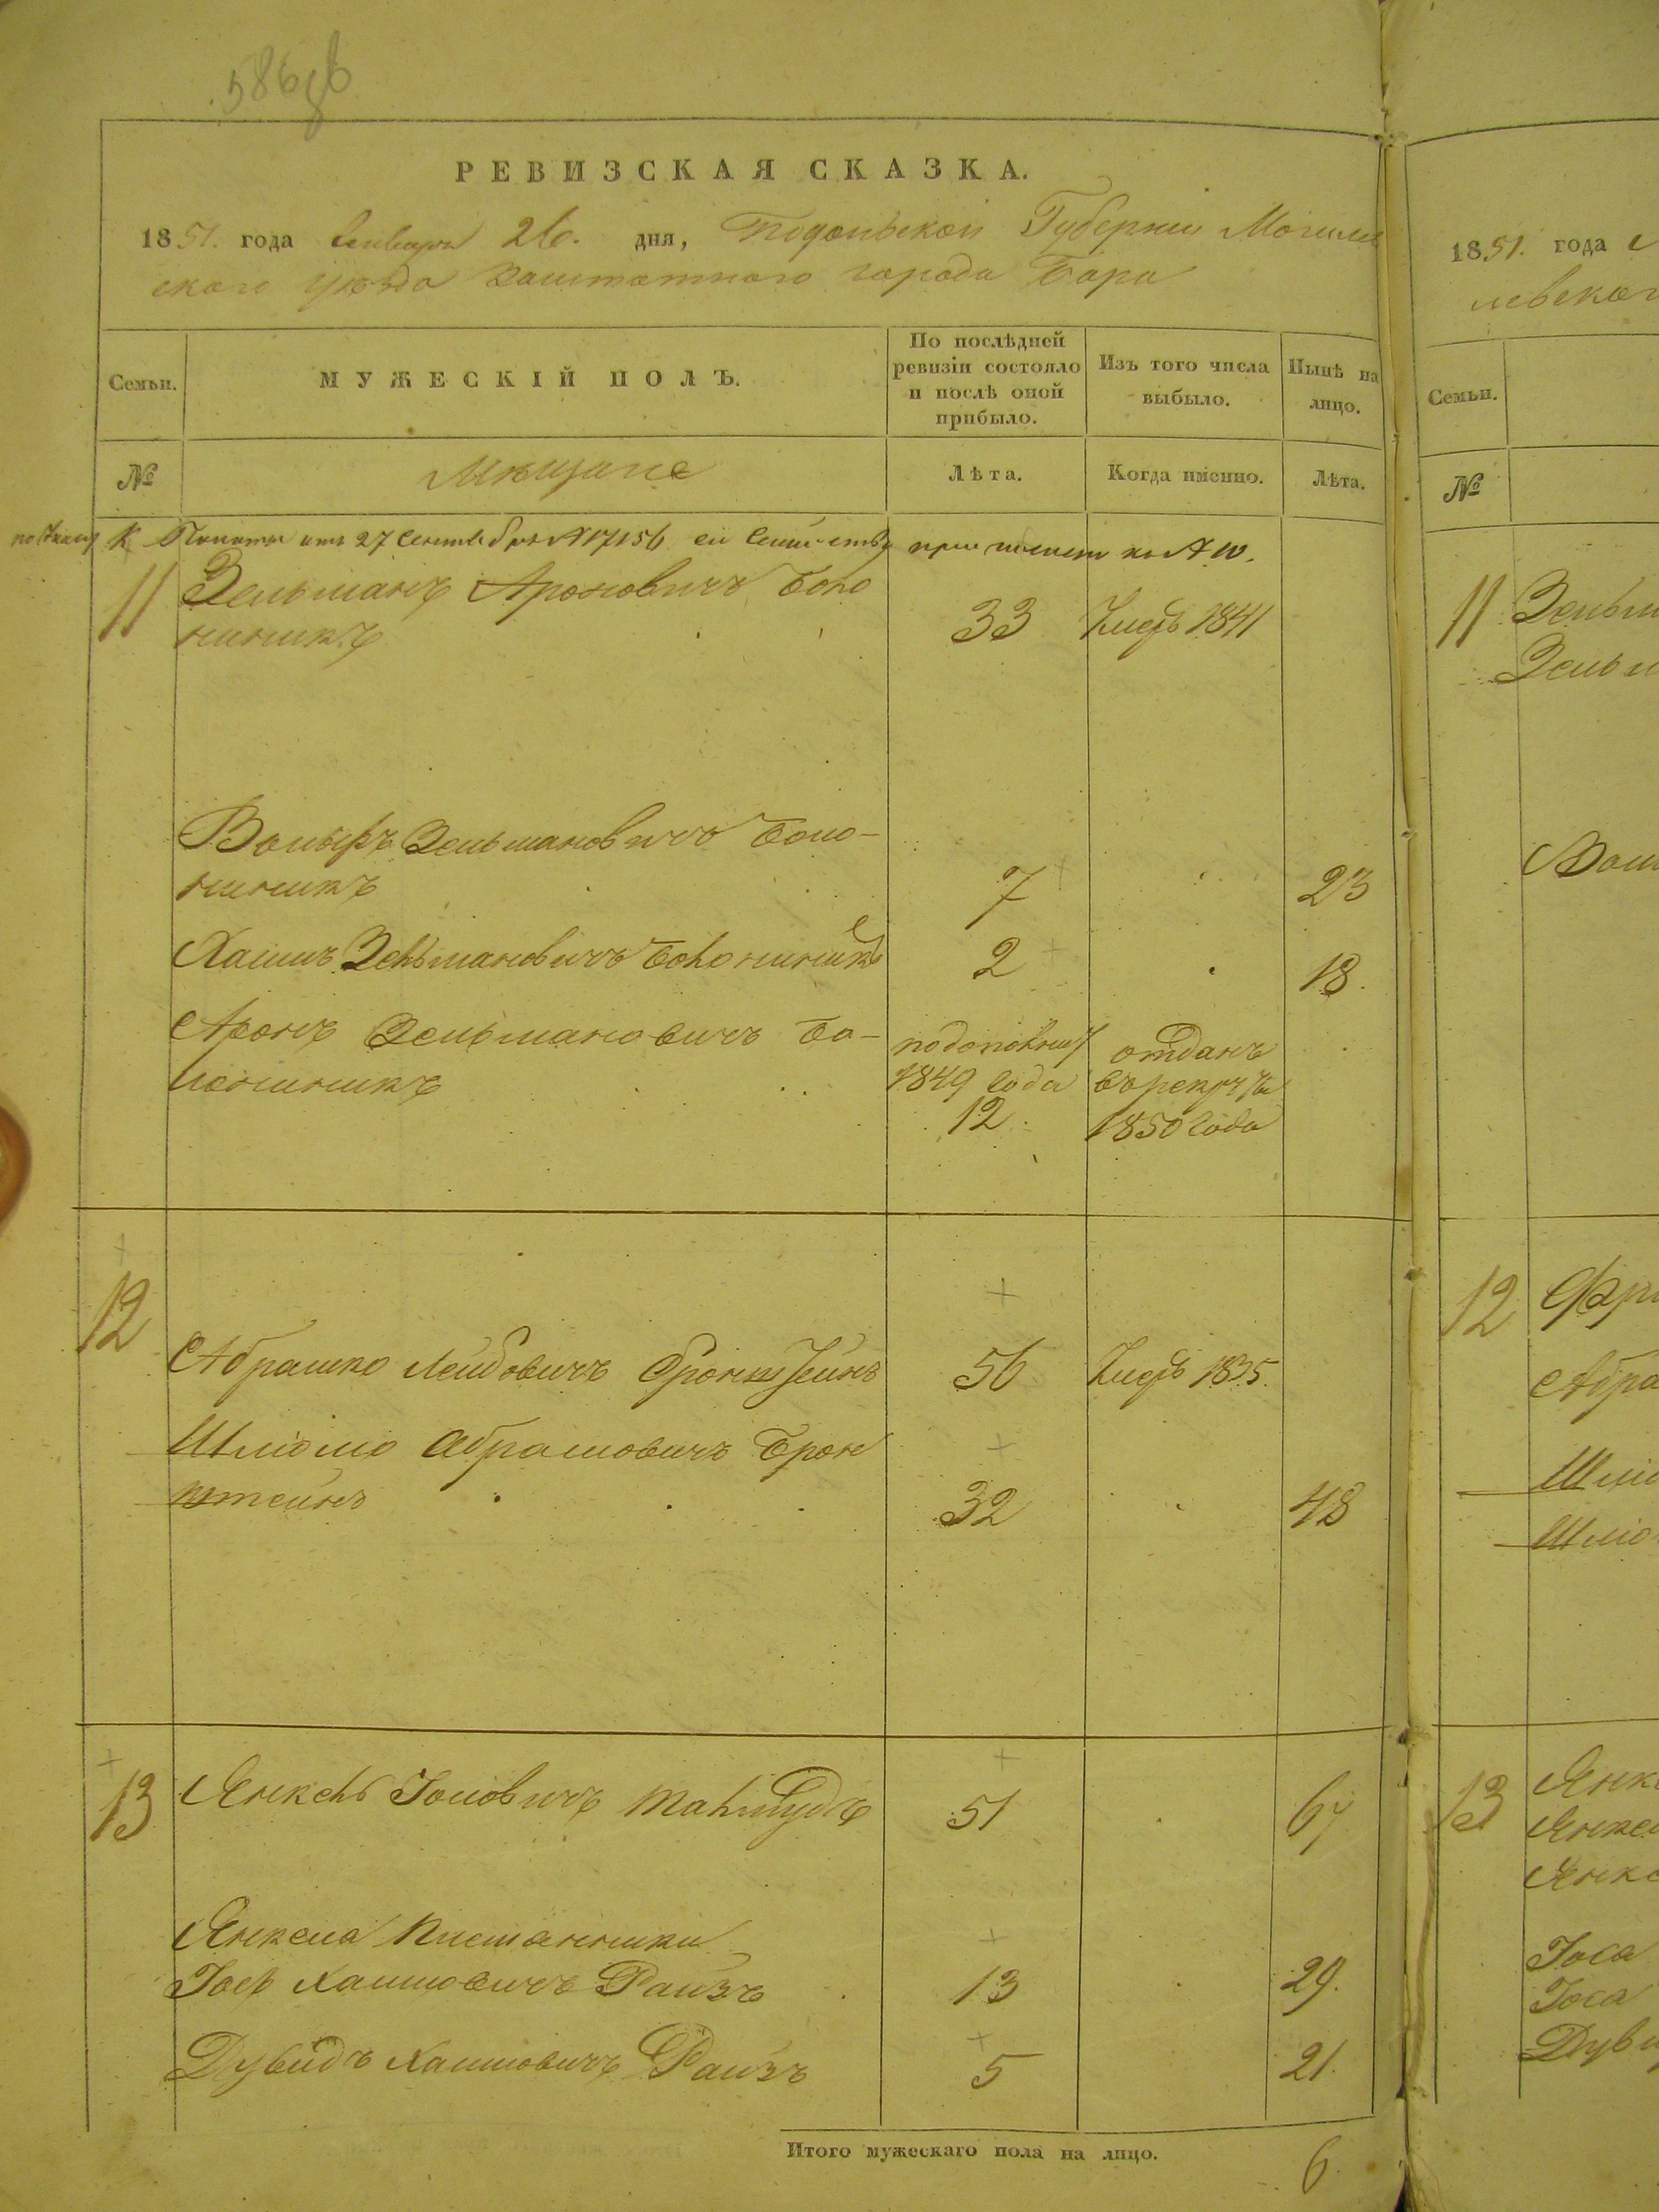 586 об
РЕВИЗСКАЯ СКАЗКА.
1851. года Генваря 26. дня, Подольской Губерніи Могилев
скаго уѣзда Заштатного города Бара
Семьи.
МУЖЕСКІЙ ПОЛЪ.
По послѣдней
ревизіи состояло
и послѣ оной
прибыло.
Изъ того числа
выбыло.
Нынѣ на
лицо.
№
Мѣщане
Лѣта.
Когда именно.
Лѣта.
К Палаты отъ 27 Сентября №17156 сіе Семейство причислено къ
11 Зельманъ Ароновичъ Боло
нникъ 33 Умеръ 1841
Вольфъ Зельмановичъ Боло-
7 23
Хаимъ Зельмановичъ 2 18.
Аронъ Зельмановичъ Бо-
1849 года
12.
отданъ
въ рекруты
1850 года
12
Абрашко Лейбовичъ Бронштейнъ 56 Умеръ 1835.
Шліомо Абрамовичъ Брон
штейнъ 32 48
13 Янкель Іосіовичъ Талмудъ 51 67
Янкеля
Іосъ Хаимовичъ Райзъ 13 29.
Дувидъ Хаимовичъ Райзъ 5 21.
Итого мужескаго пола на лицо. 6
1851. года
левскаг
Семьи.
№
11
12
Абра
13
Янк
Янке
Янк
Іоса
Іоса
Дув